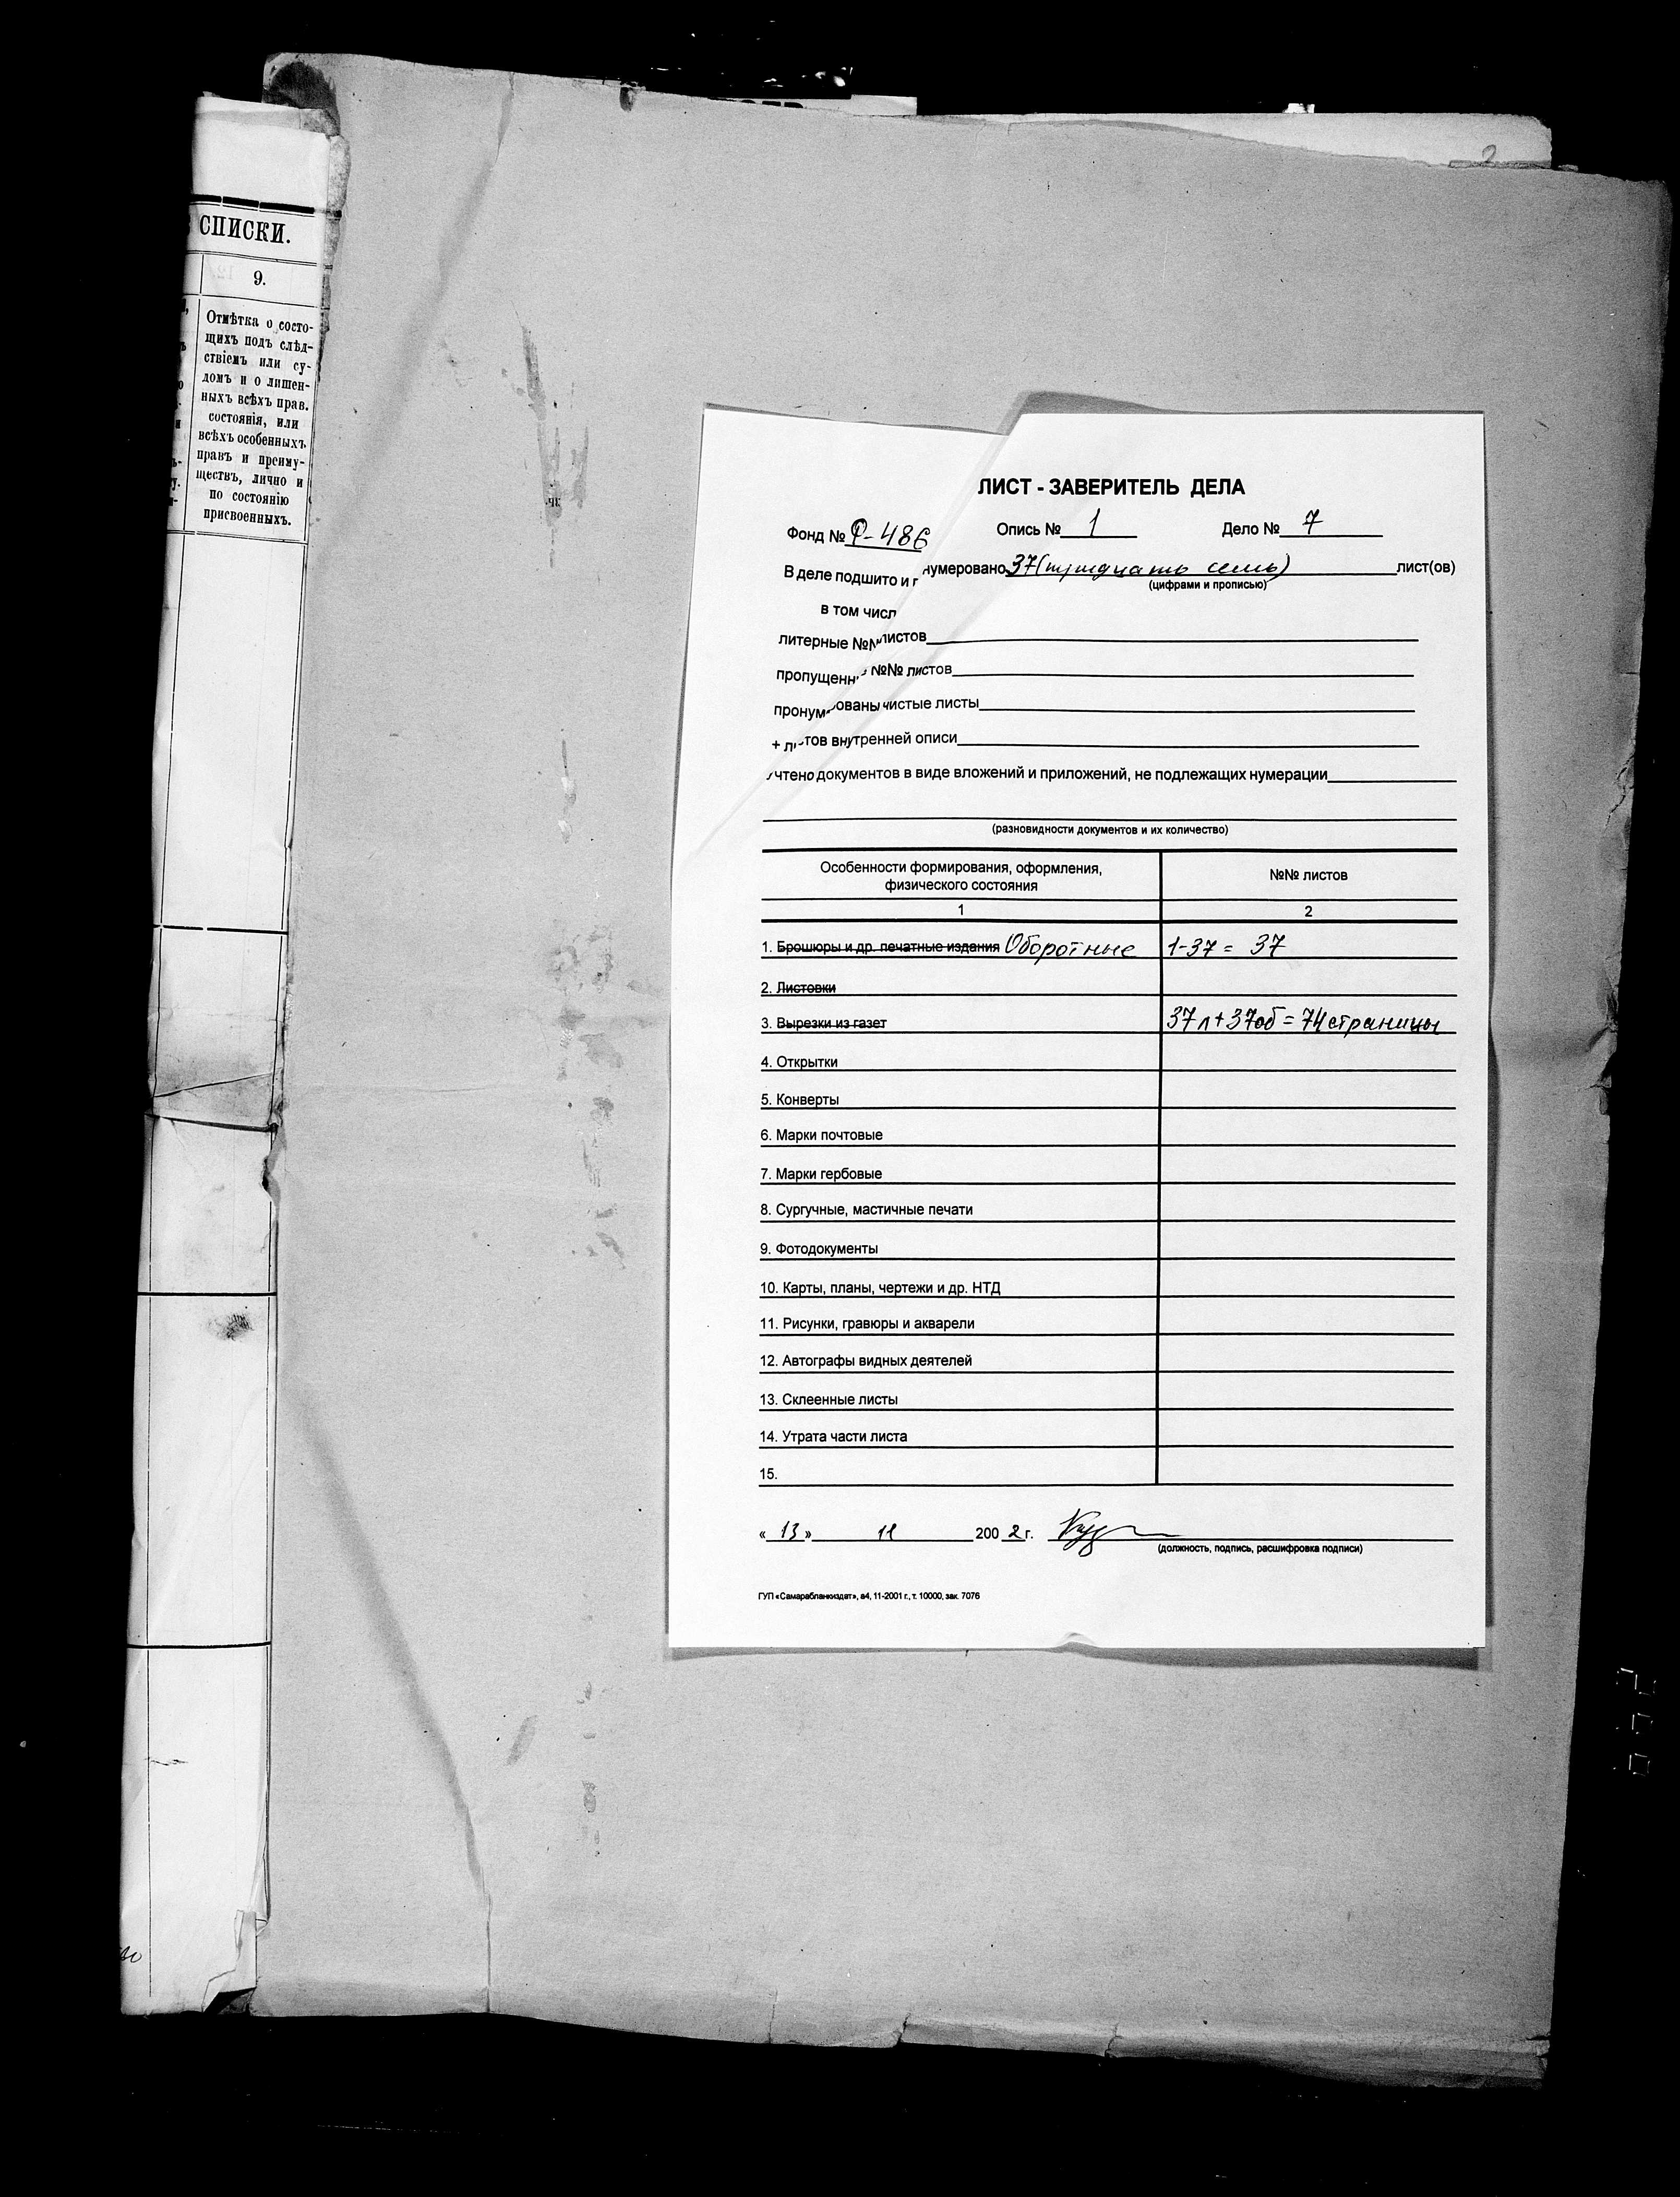 СПИСКИ.
9.
Отмѣтка о состо-
щихъ подъ слѣд-
ствіемъ или су-
домъ и о лишен-
ныхъ всѣхъ прав.
состоянія, или
всѣхъ особенныхъ
правъ и преиму-
ществъ, лично и
по состоянію
присвоенныхъ.
ЛИСТ - ЗАВЕРИТЕЛЬ ДЕЛА
Фонд № Р-486 Опись № 1 Дело № 7
В деле подшито и п нумеровано 37 (тридцать семь) лист(ов)
(цифрами и прописью)
в том числ
литерные №№ листов
пропущенн №№ листов
пронум ованы чистые листы
+ ли тов внутренней описи
учтено документов в виде вложений и приложений, не подлежащих нумерации
(разновидности документов и их количество)
Особенности формирования, оформления, физического состояния №№ листов
1 2
1. Брошюры и др. печатные издания Оборотные 1-37 = 37
2. Листовки
3. Вырезки из газет 37л+37об=74страницы
4. Открытки
5. Конверты
6. Марки почтовые
7. Марки гербовые
8. Сургучные, мастичные печати
9. Фотодокументы
10. Карты, планы, чертежи и др. НТД
11. Рисунки, гравюры и акварели
12. Автографы видных деятелей
13. Склеенные листы
14. Утрата части листа
15.
« 13 » 11 200 2 г.
(должность, подпись, расшифровка подписи)
ГУП «Самарабланкиздат», а4, 11-2001 г., т. 10000, зак. 7076